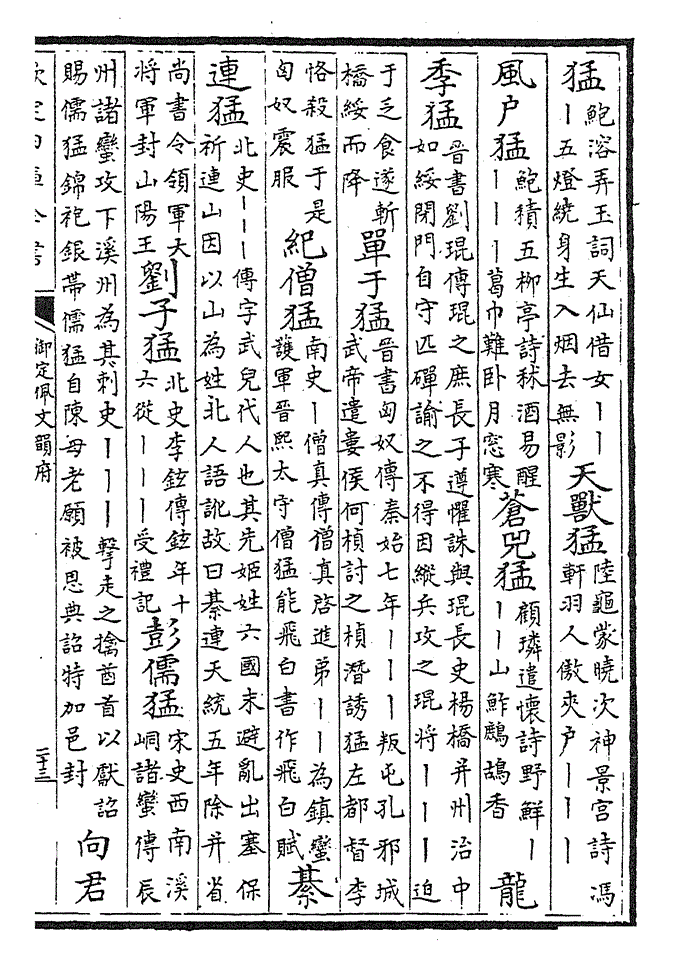 猛鮑溶弄玉詞天仙借女丨丨丨五燈繞身生入烟去無影天獸猛陸龜蒙曉次神景宫詩馮軒羽人傲夾户丨丨丨
風户猛鮑積五柳亭詩秫酒易醒丨丨丨葛巾難卧月窓寒蒼兕猛顧璘遣懷詩野鮮丨丨丨山鮓鷓鴣香龍
季猛晉書劉琨傳琨之庶長子遵懼誅與琨長史楊橋并州治中如綏閉門自守匹磾諭之不得因縱兵攻之琨將丨丨丨迫
于乏食遂斬橋綏而降單于猛晉書匈奴傳秦始七年丨丨丨叛屯孔邪城武帝遣婁侯何楨討之楨潛誘猛左都督李
恪殺猛于是匈奴震服紀僧猛南史丨僧真傳僧真啓進弟丨丨為鎮蠻護軍晉熙太守僧猛能飛白書作飛白賦綦
連猛北史丨丨丨傳字武兒代人也其先姬姓六國末避亂出塞保祈連山因以山為姓北人語訛故曰綦連天統五年除并省
尚書令領軍大將軍封山陽王劉子猛北史李鉉傳鉉年十六從丨丨丨受禮記彭儒猛宋史西南溪峒諸蠻傳辰
州諸蠻攻下溪州為其刺史丨丨丨擊走之擒酋首以獻詔賜儒猛錦袍銀帶儒猛自陳母老願被恩典詔特加邑封向君
欽定四庫全書
御定佩文韻府
二十三